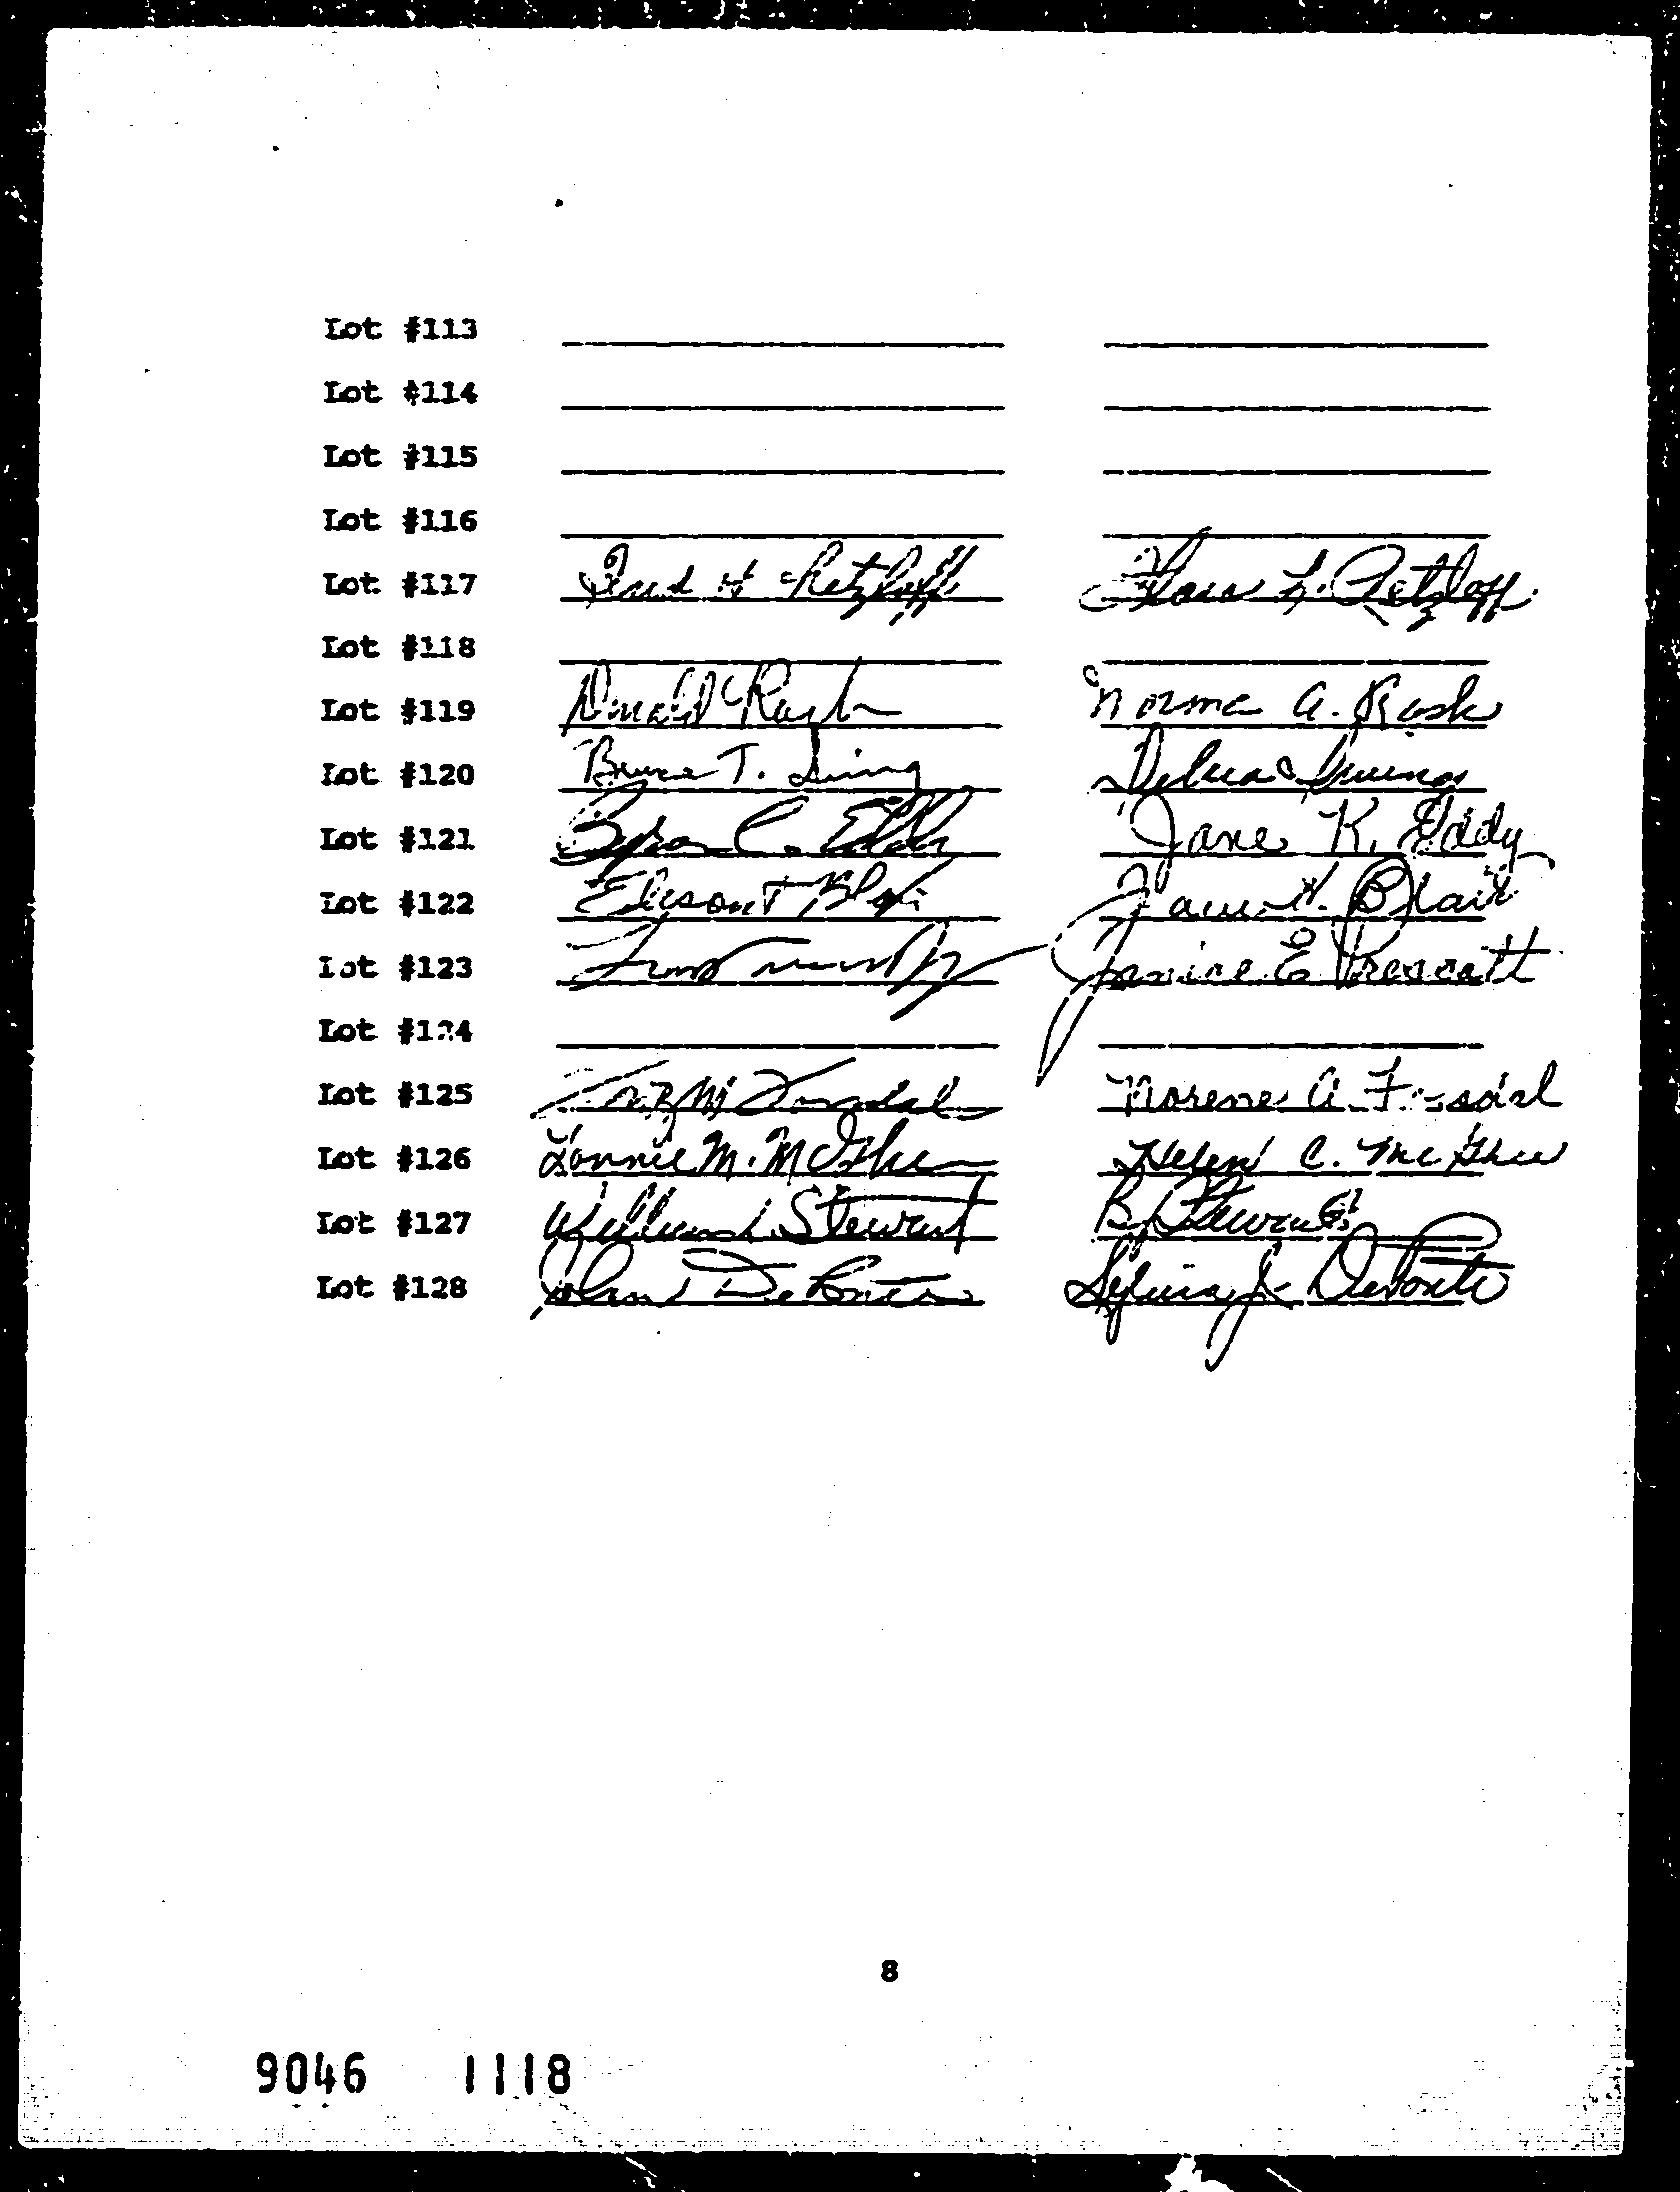 Lot #113
Lot #114
Lot #115
Lot #116
Lot #117 Fred H Retzloff Flora L. Retzloff
Lot #118
Lot #119 Donald Rask Norma A. Rask
Lot #120 Bruce T. Debra
Lot #121 Byron C. Eddy Jane K. Eddy
Lot #122 Blair H. Blair
Lot #123 Janice E Prescott
Lot #124
Lot #125 Norene A.
Lot #126 Lonnie M. McGhee Helen C. McGhee
Lot #127 William Stewart B. Stewart
Lot #128 John DePonte Sylvia J. DePonte
8
9046 1118